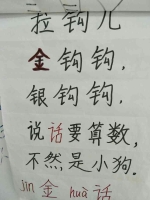 拉钩儿
金钩钩,
银钩钩,
说话要算数,
不然是小狗.
jīn 金 huà 话